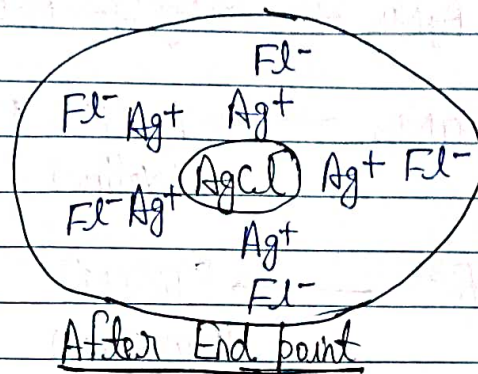 Fl⁻
Fl⁻ Ag⁺ Ag⁺
AgCl Ag⁺ Fl⁻
Fl⁻ Ag⁺
Ag⁺
Fl⁻
After End point